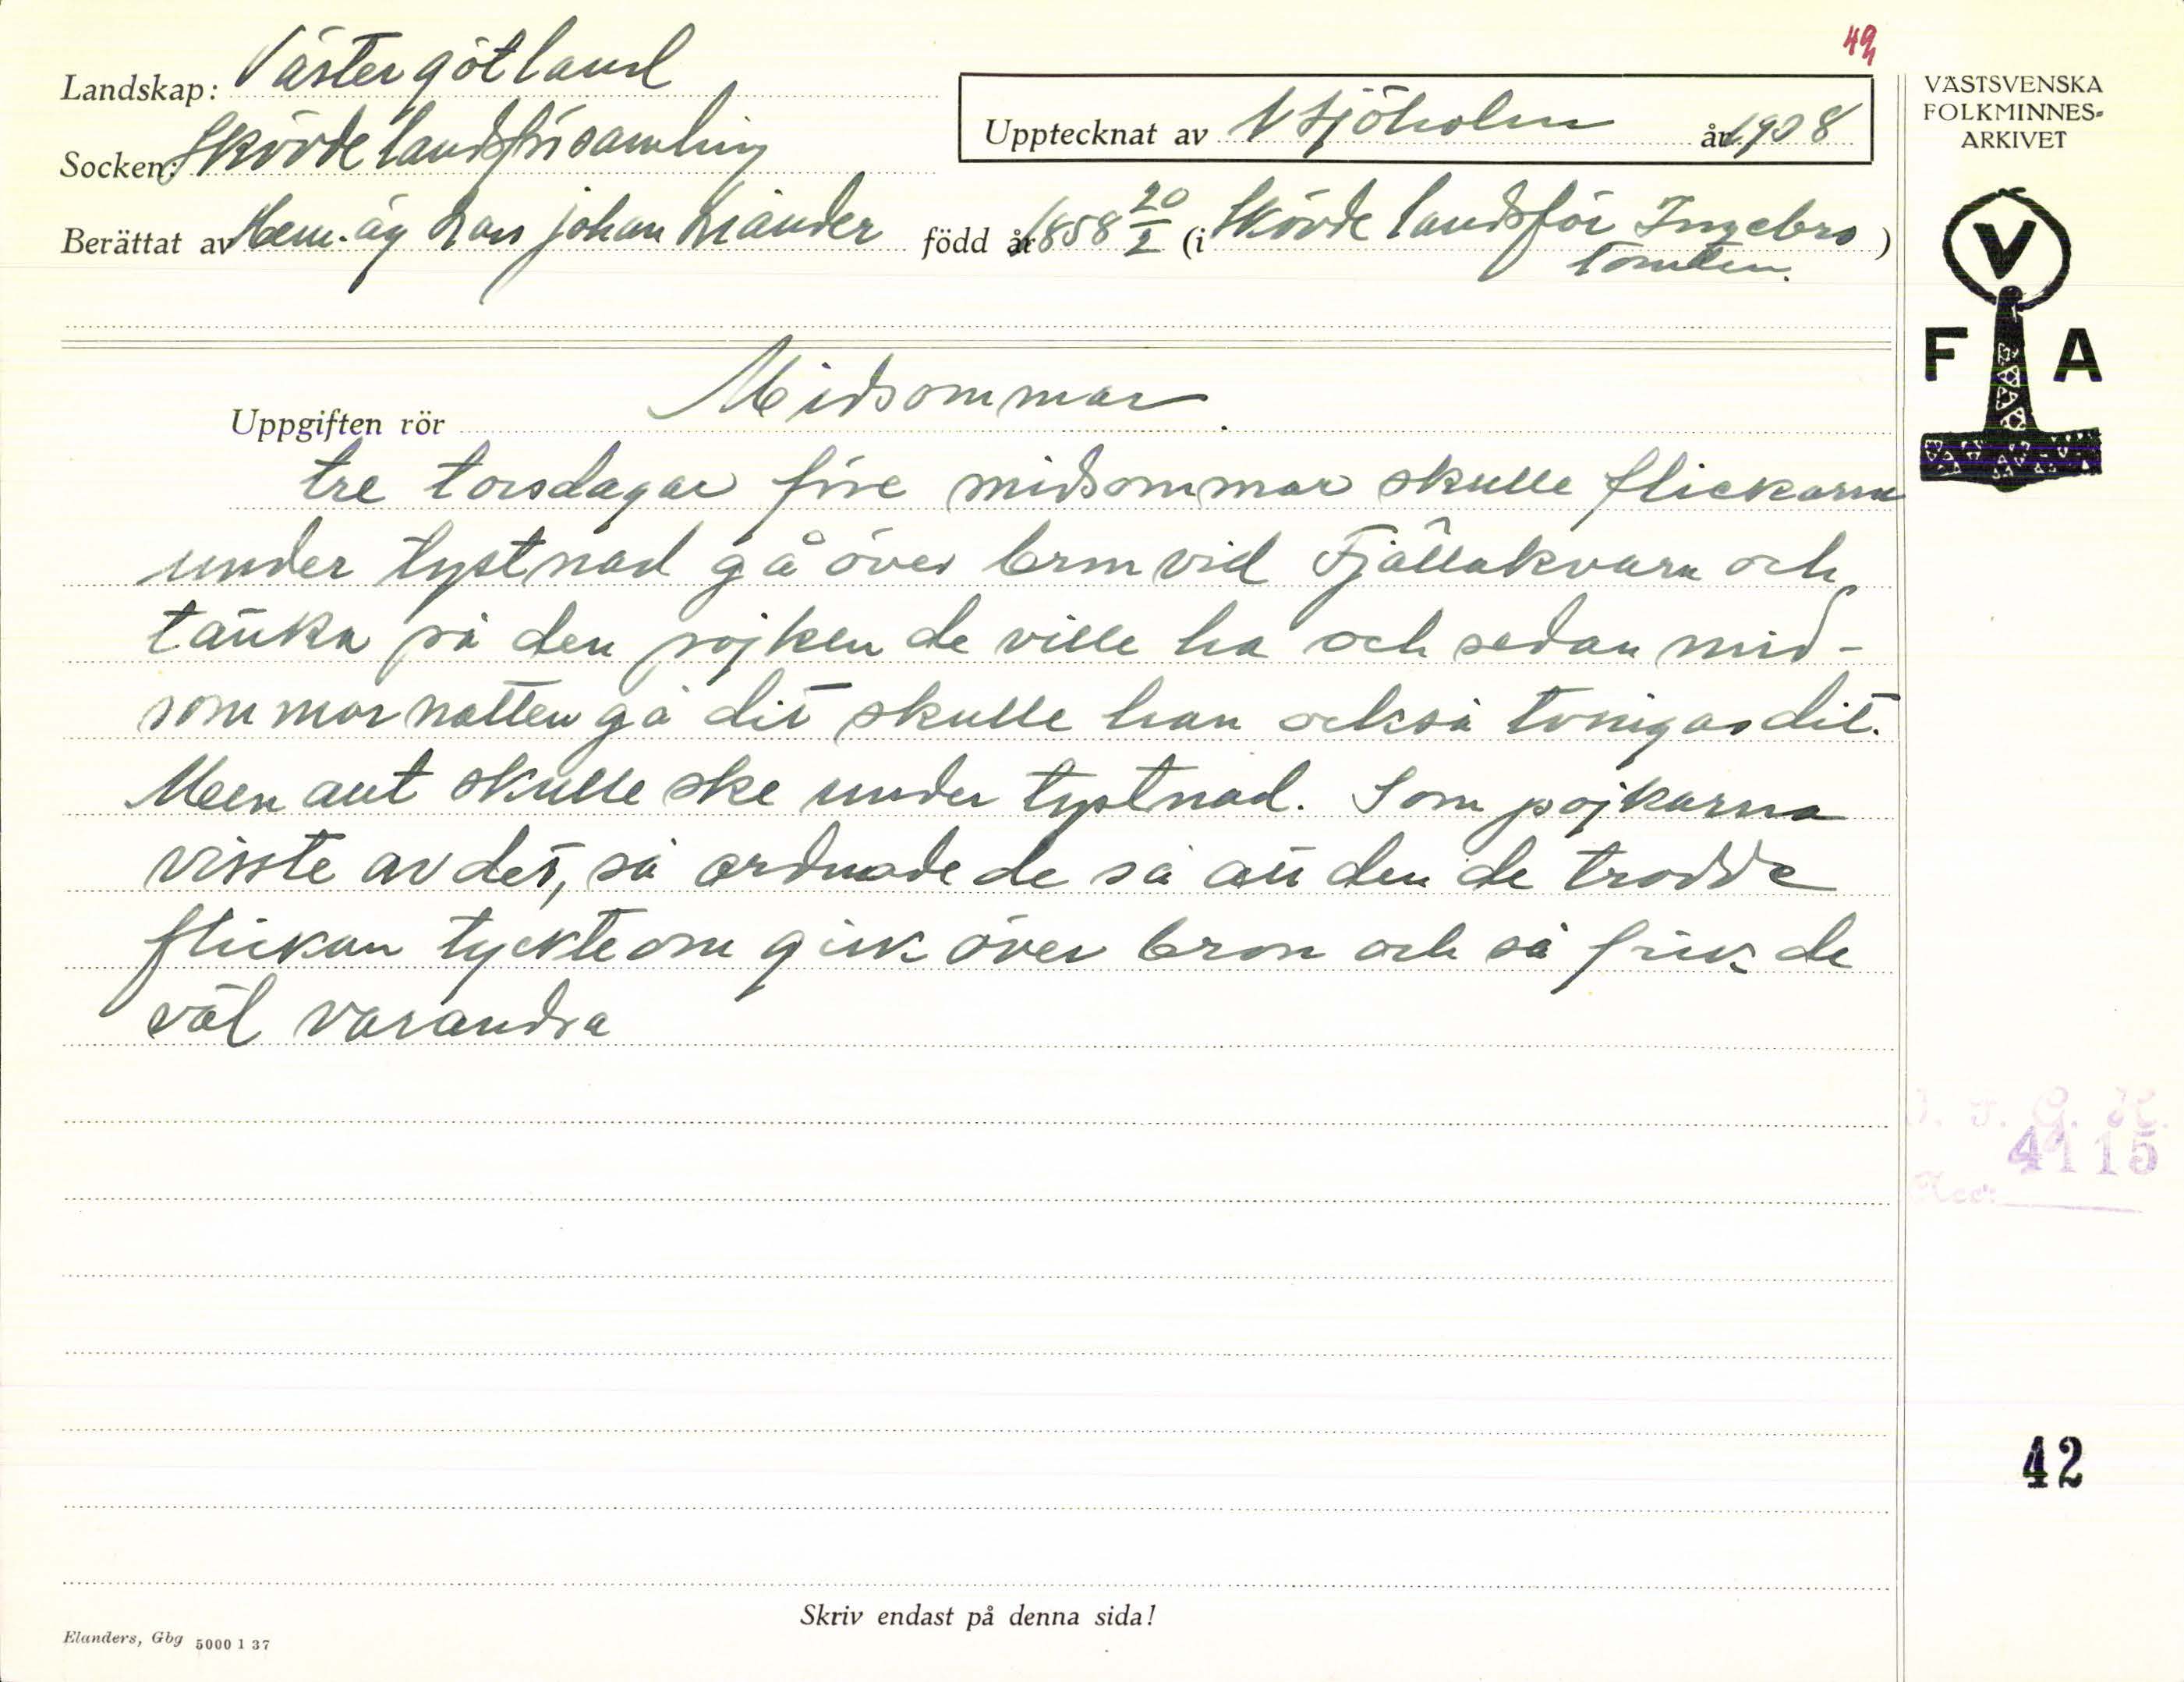 49
Landskap: Västergötland
Socken: Skövde landsförsamling
Upptecknat av V Sjöholm år 1908
VÄSTSVENSKA
FOLKMINNES-
ARKIVET
Berättat av Hem. äg Lars johan född år 1858 20/2 (i Skövde landsför Ingebro)
Tomten.
V
F A
Uppgiften rör Midsommar
tre torsdagar före midsommar skulle flickarna
under tystnad gå över bron vid Fjällakvarn och
tänka på den pojken de ville ha och sedan mid-
sommarnatten gå dit skulle han också tvingas dit.
Men allt skulle ske under tystnad. Som pojkarna
visste av det, så ordnade de så att den de trodde
flickan tyckte om gick över bron och så fick de
väl varandra
4115
Acc.
42
Skriv endast på denna sida!
Elanders, Gbg 5000 1 37